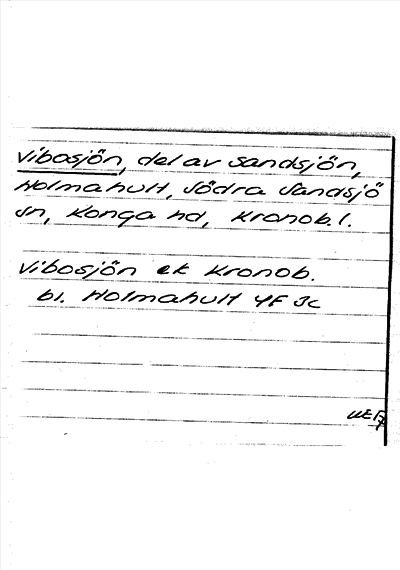 Vibosjön, del av Sandsjön,
Holmahult, Södra Sandsjö
sn, Konga hd, Kronob. l.
Vibosjön ek Kronob.
bl. Holmahult 4F 3c